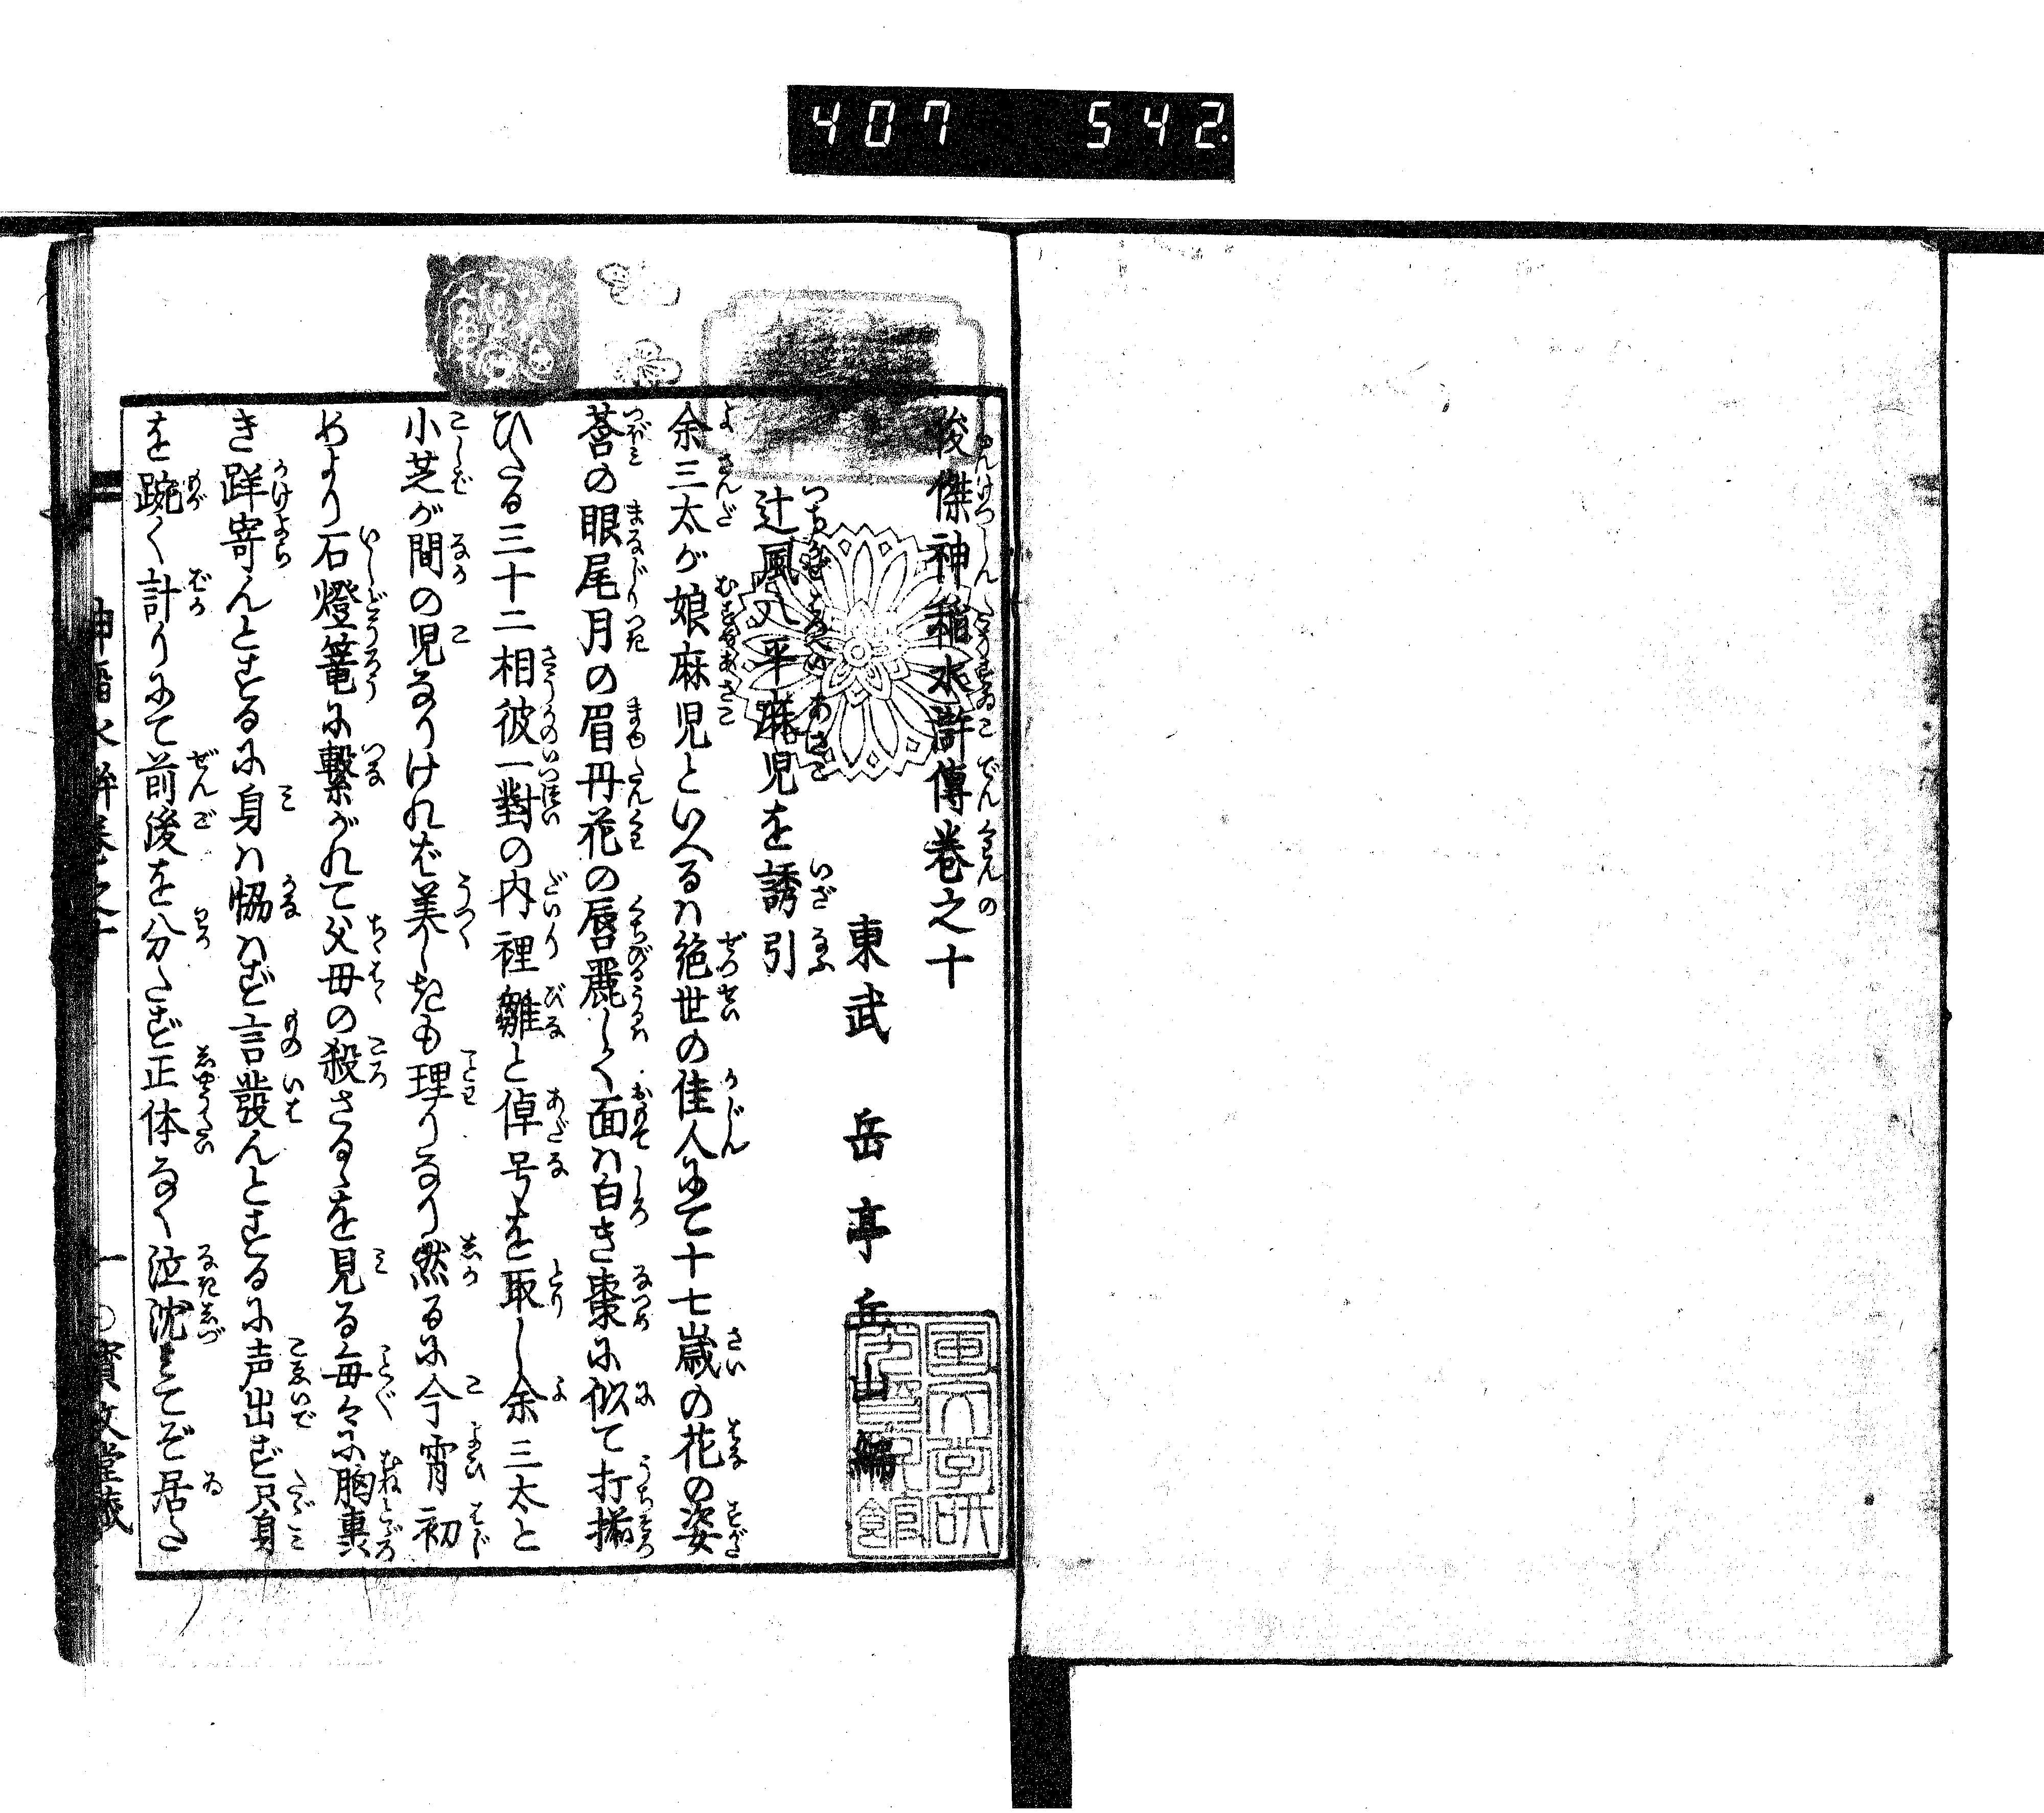 407 542
俊傑神稲水滸傳巻之十
東武 岳亭岳山編
辻風八平麻児を誘引
余三太が娘麻児といへるハ絶世の佳人にて十七歳の花の姿
莟の眼尾月の眉丹花の唇麗しく面ハ白き棗に似て打揃
ひたる三十二相彼一對の内裡雛と倬号を取し余三太と
小芝が間の児なりけれバ美しきも理りなり然るに今宵初
めより石燈篭に繋がれて父母の殺さるゝを見る毎々に胸裏
き跘寄んとするに身ハ恊ハず言發んとするに声出ず只身
を踠く計りにて前後を分たず正体なく泣沈てぞ居た